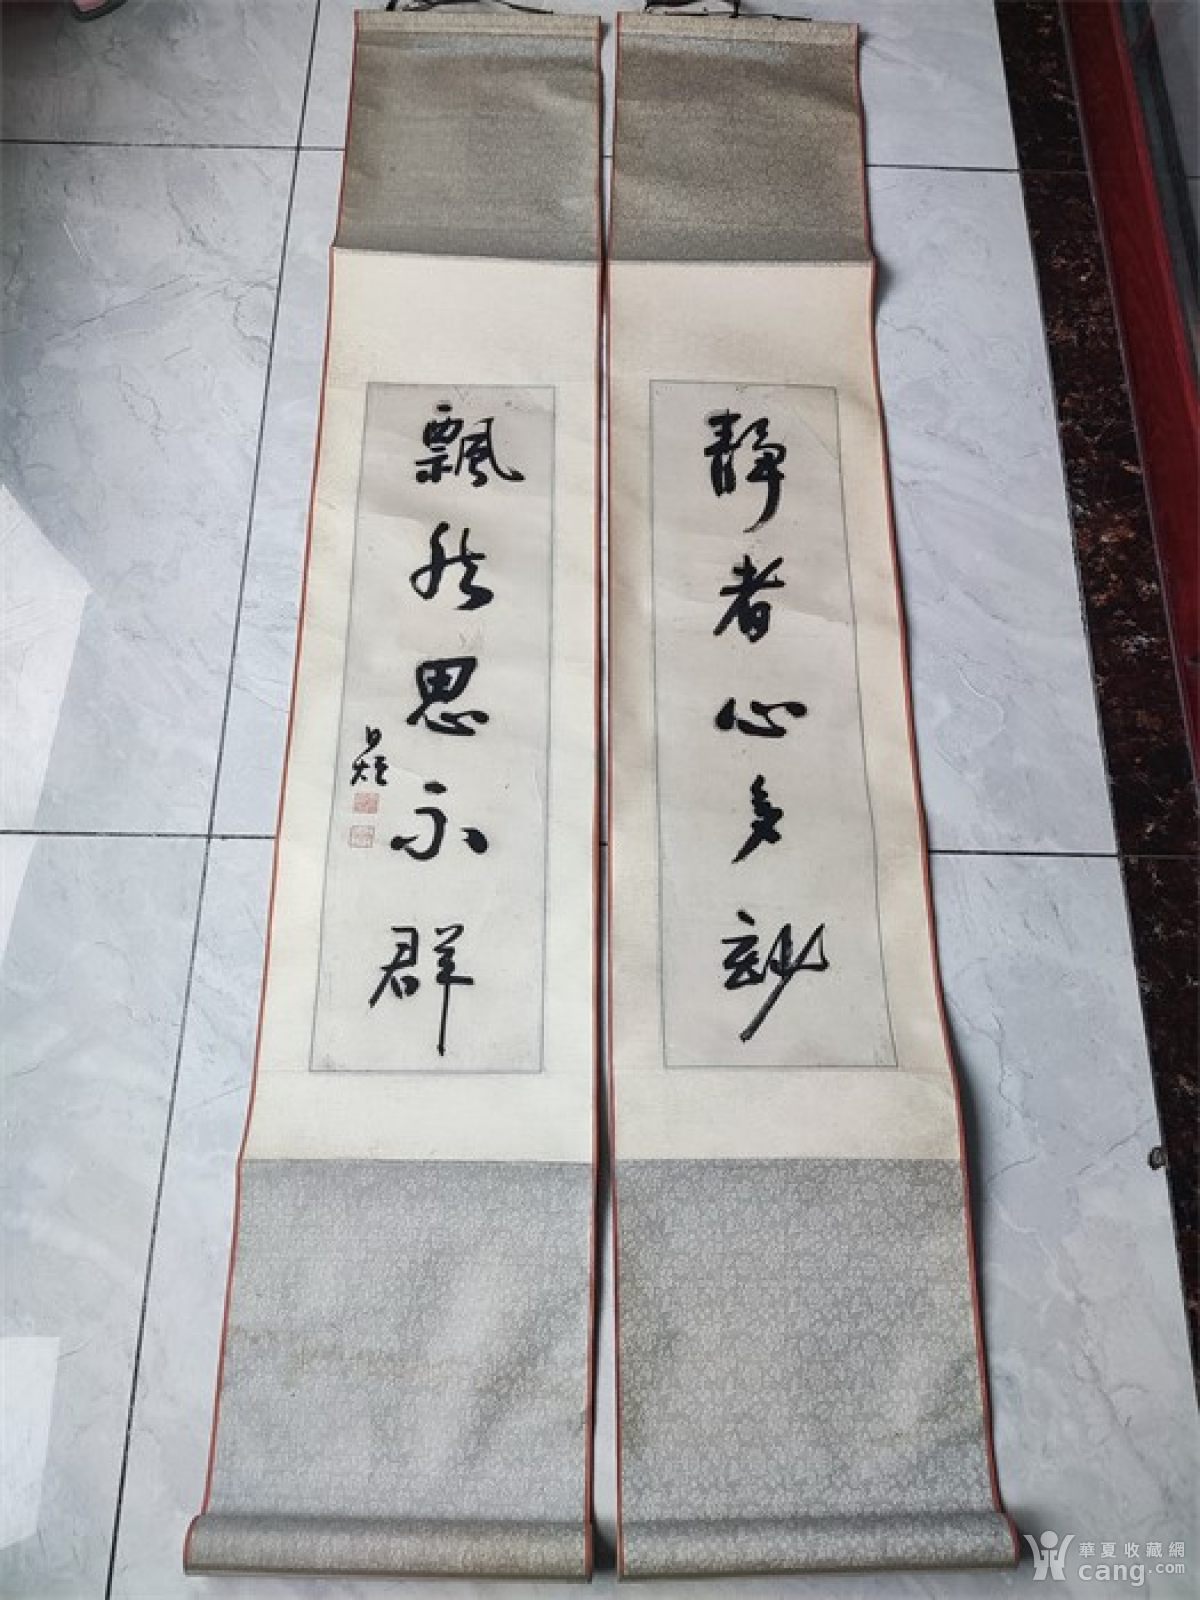 靜者心多妙
飄然思不群
華夏收藏網
cang.com